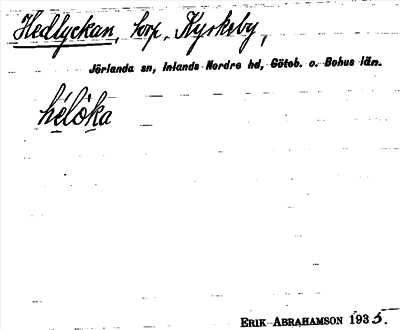 Hedlyckan, torp, Kyrkeby,
Jörlanda sn, Inlands Nordre hd, Göteb. o. Bohus län.
hélò̀ka
ERIK ABRAHAMSON 1935.